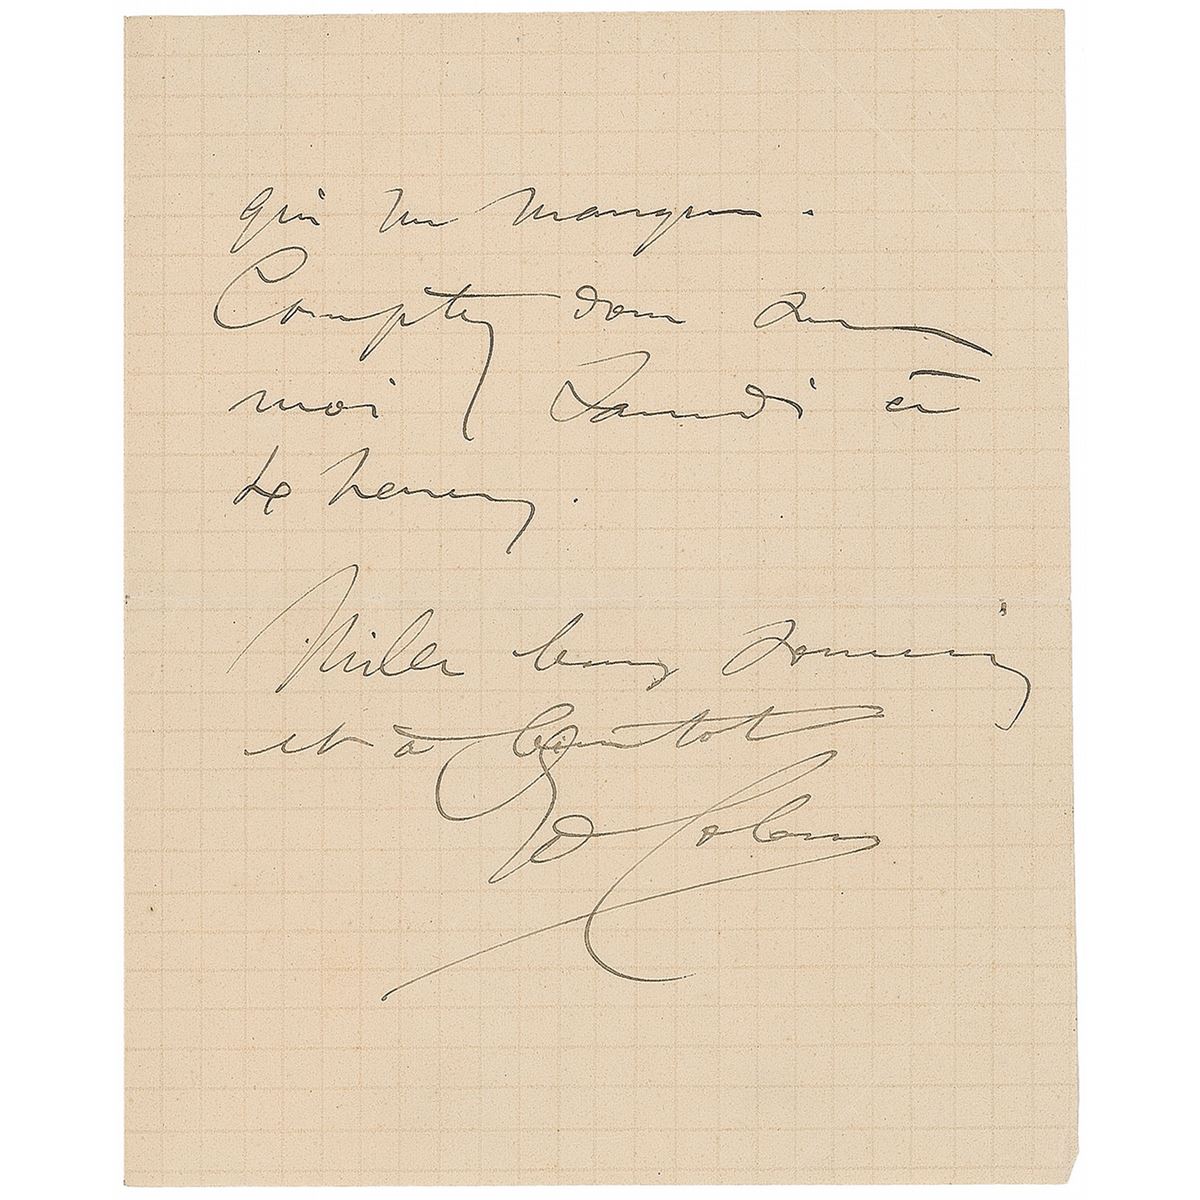 qui me manque.
Comptez donc sur
moi Samedi à
4 heures.
Mille bons souvenirs
et à bientot
Ed Colonne